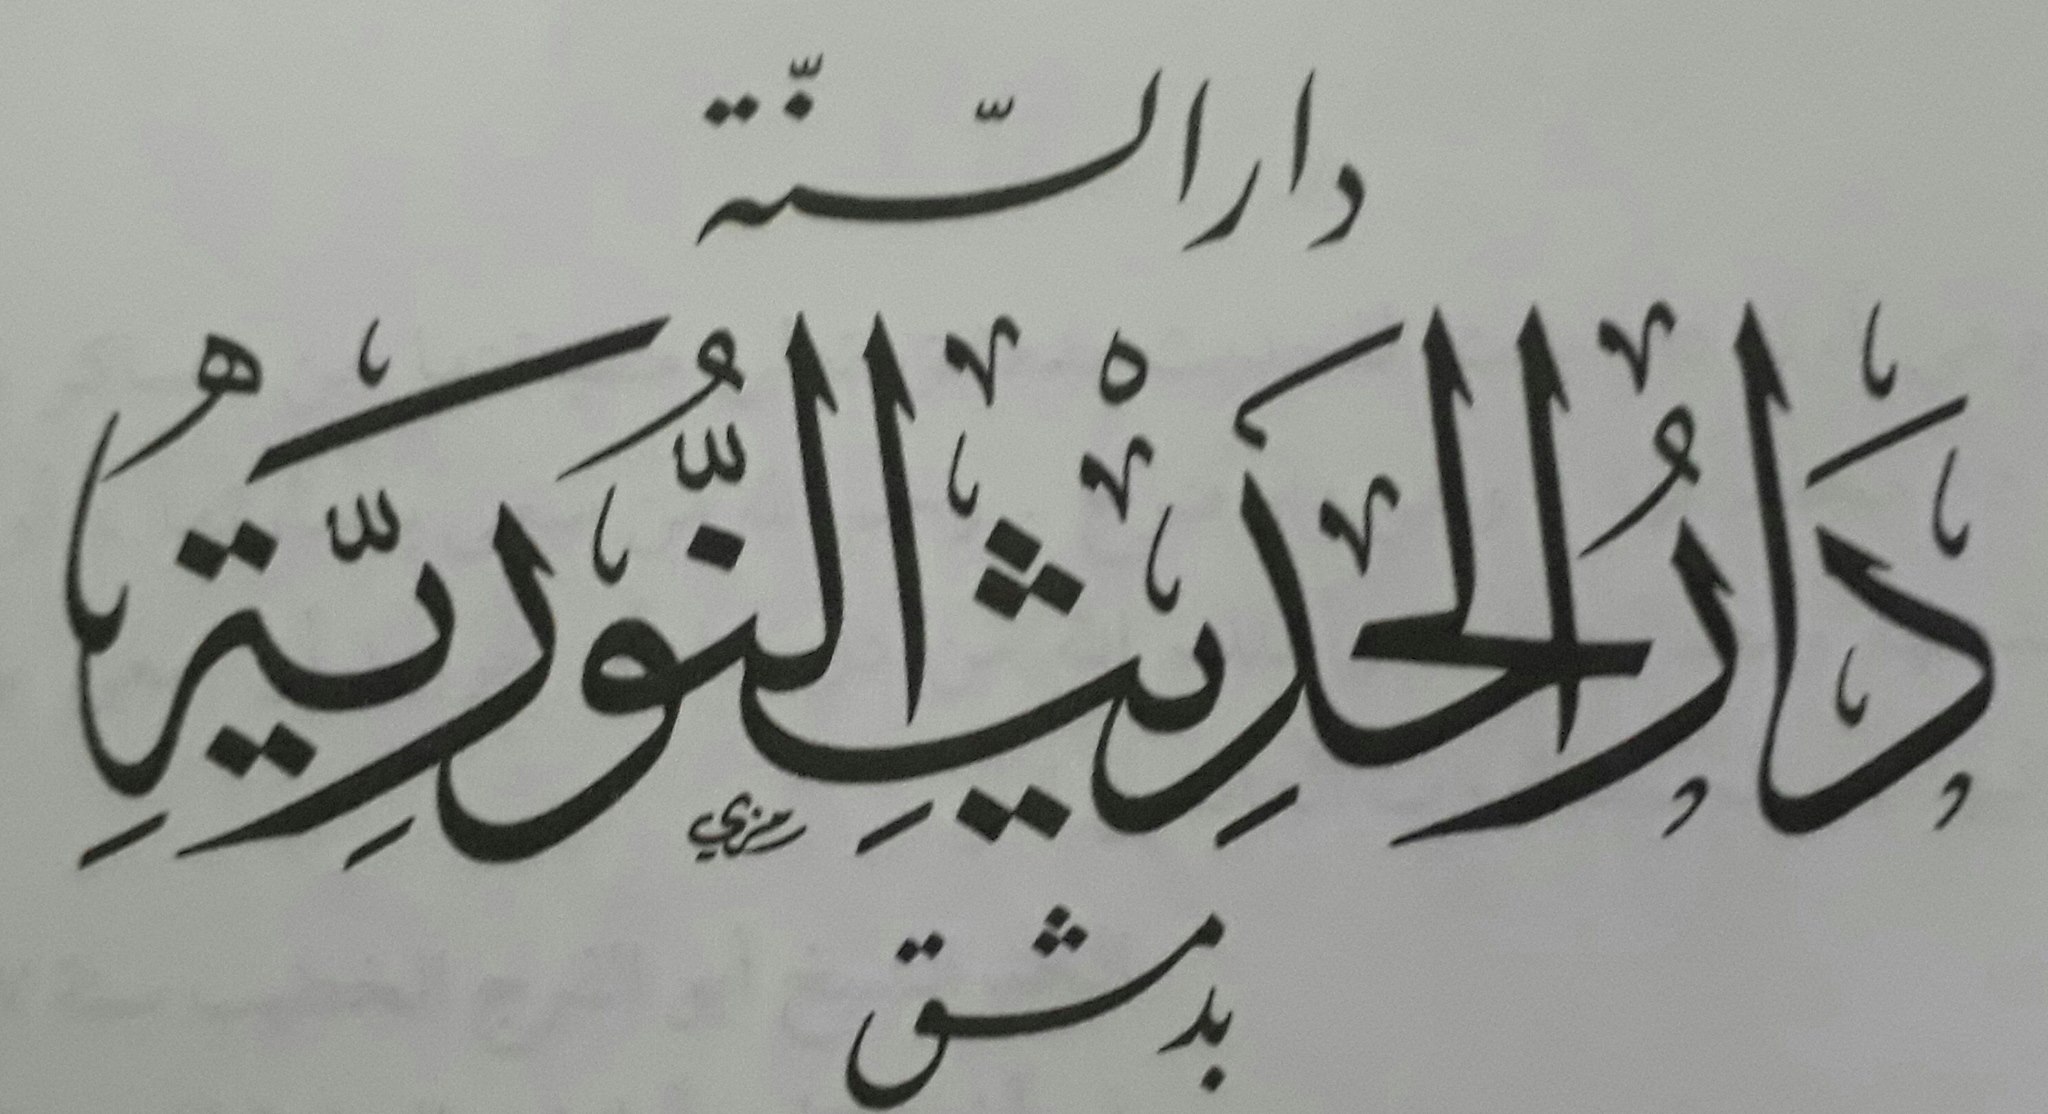 دار السّنّة
دَارُ الحَدِيْثِ النُّورِيَّةِ
رمزي
بدمشق